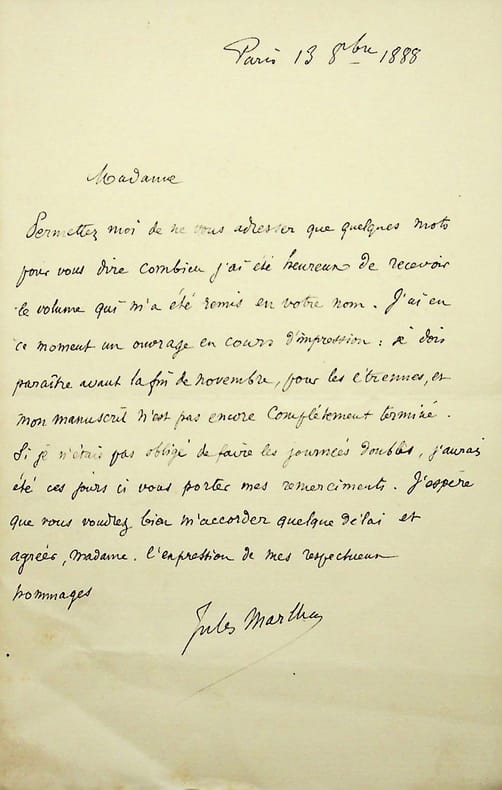 Paris 13 8bre 1888
Madame
Permettez moi de ne vous adresser que quelques mots
pour vous dire combien j'ai été heureux de recevoir
le volume qui m'a été remis en votre nom. J'ai en
ce moment un ouvrage en cours d'impression : je dois
paraître avant la fin de novembre, pour les étrennes, et
mon manuscrit n'est pas encore complètement terminé.
Si je n'étais pas obligé de faire les journées doubles, j'aurais
été ces jours ci vous porter mes remerciments. J'espère
que vous voudrez bien m'accorder quelque délai et
agréer, madame. l'expression de mes respectueux
hommages
Jules Martha